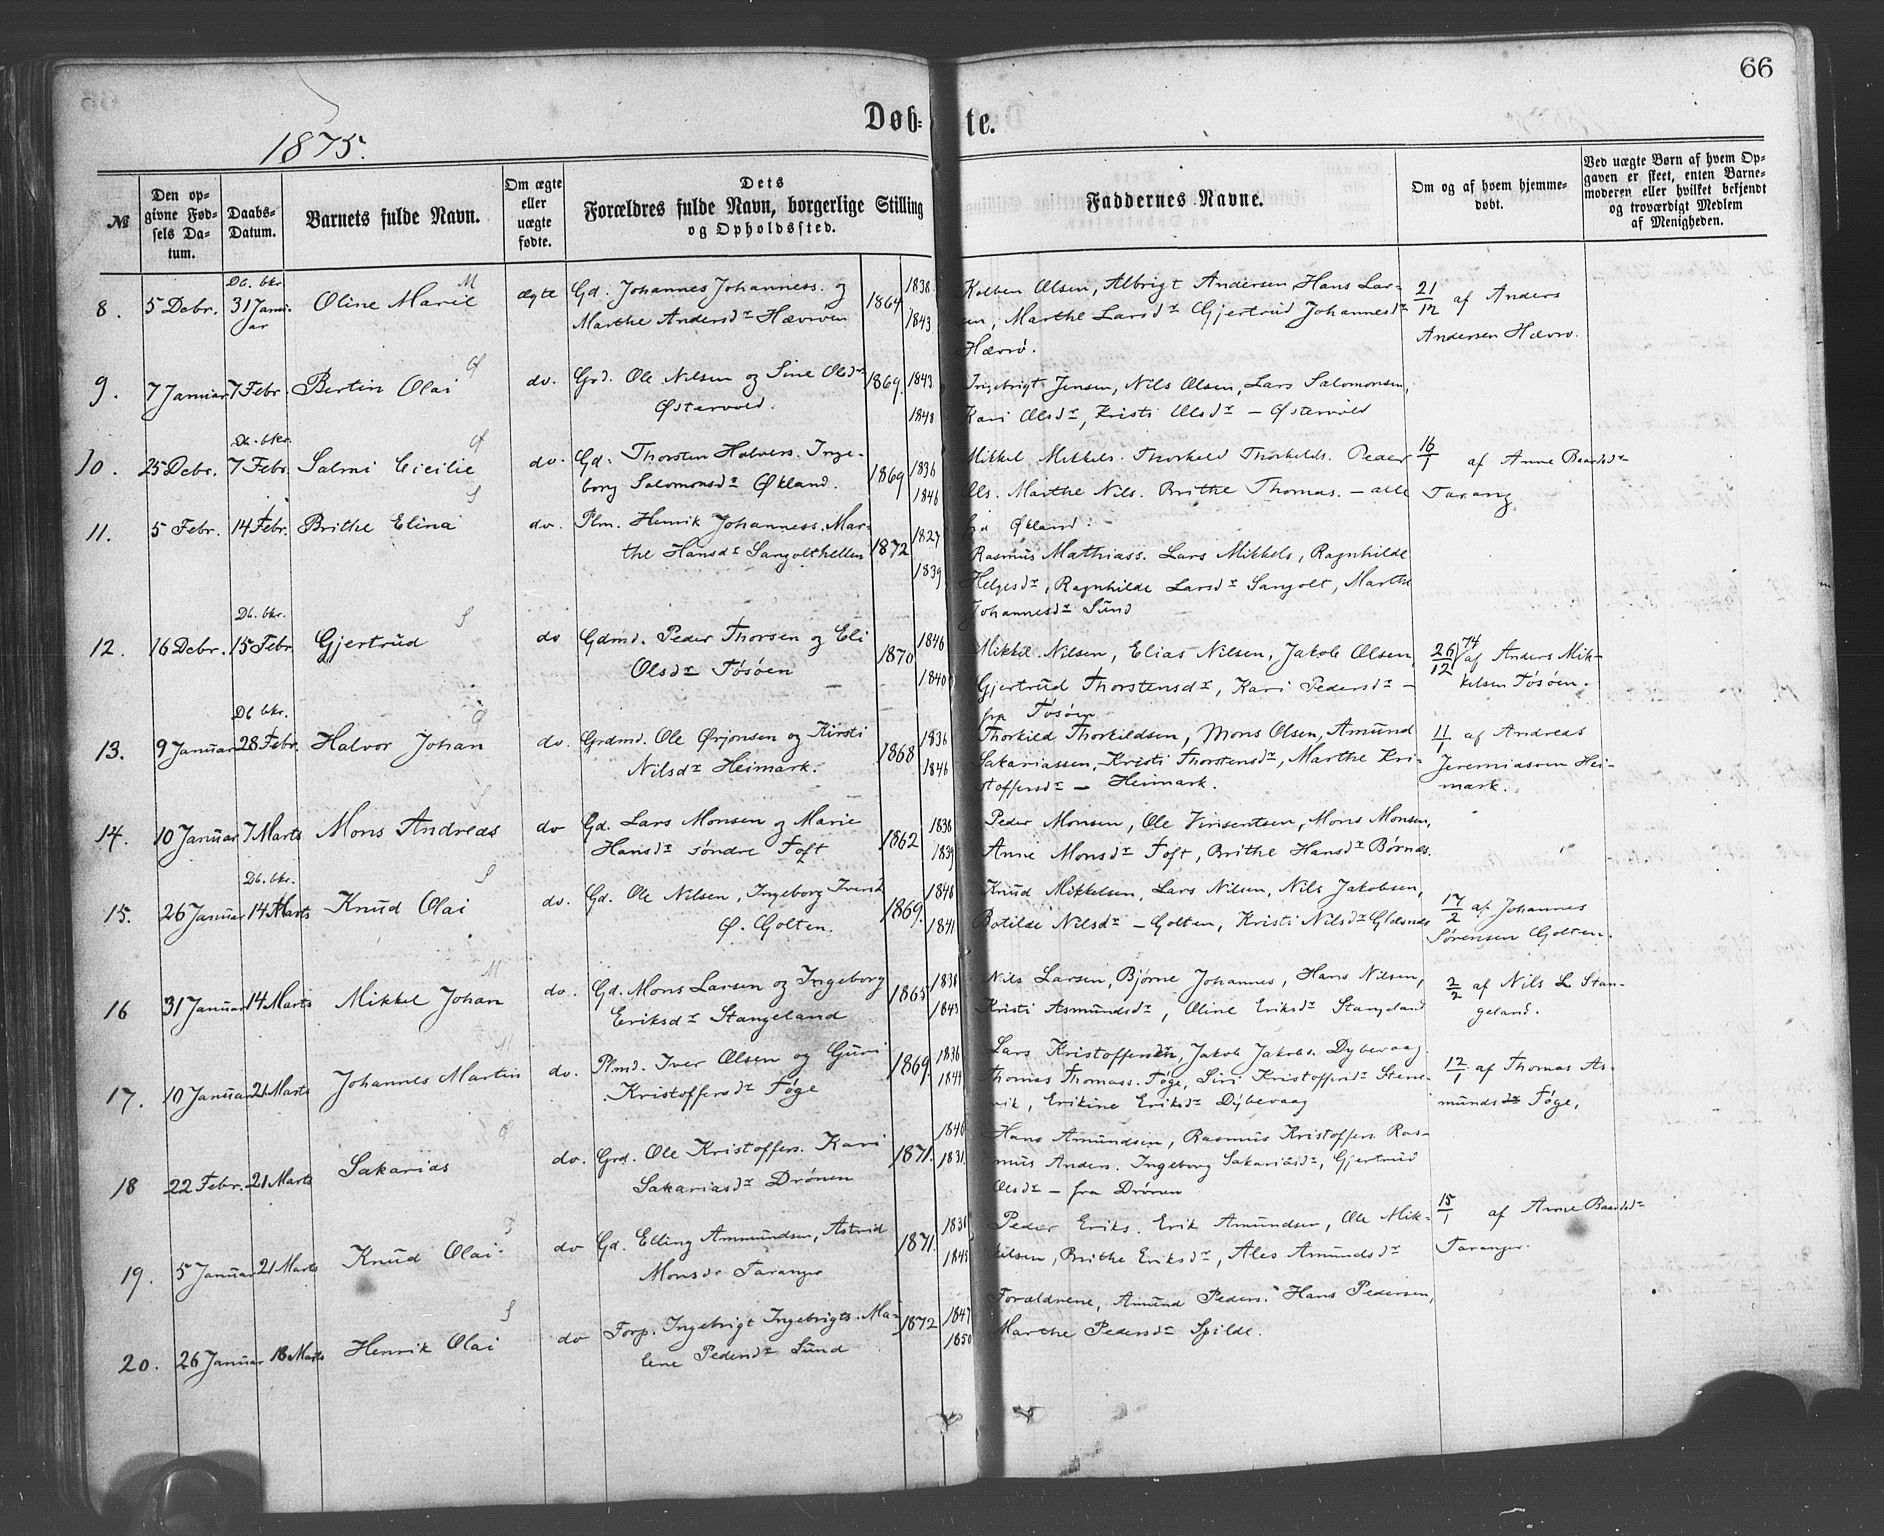 66
Døb-te.
1875.
№
Den opgivne Fødsels Datum.
Daabs-Datum.
Barnets fulde Navn.
Om ægte eller uægte fødte.
Dets Forældres fulde Navn, borgerlige Stilling og Opholdssted.
Faddernes Navne.
Om og af hvem hjemmedøbt.
Ved uægte Børn af hvem Opgaven er skeet, enten Barnemoderen eller hvilket bekjendt og troværdigt Medlem af Menigheden.
8. 5 Debr. Db. bkr. 31 Januar Oline Marie M ægte Gd. Johannes Johanness. og 1864 1838
Marthe Andersdr Hævroen 1843
Kolben Olsen, Albrigt Andersen Hans Lar-
sen, Marthe Larsdr Gjertrud Johannesdr
Hævrö.
21/12 af Anders
Andersen Hævrö.
9. 7 Januar 7 Febr. Bertin Olai Ø do. Grd. Ole Nilsen og Sine Olsdr 1869. 1843
Østervold. 1848
Ingebrigt Jensen, Nils Olsen, Lars Salomonsen,
Kari Olsdr, Kristi Olsdr – Østervold
10. 25 Debr. Db. bkr. 7 Febr. Salmi Cicilie Ø do. Gd. Thorsten Halvors. Inge- 1869 1836
borg Salomonsdr Økland. 1846
Mikkel Mikkels. Thorkeld Thorkelds. Peder
Ols. Marthe Nils. Brithe Thomas. – alle
fra Økland.
16/1 af Anne Baardsdr
Tarang
11. 5 Febr. 14 Febr. Brithe Elina S do. Plm. Henrik Johanness. Mar- 1872 1827
the Hansdr Sangolthellen 1839
Rasmus Mathiass. Lars Mikkels, Ragnhilde
Helgesdr, Ragnhilde Larsdr Sangolt, Marthe
Johannesdr Sund
12. 16 Debr. Db. bkr. 15 Febr. Gjertrud S do Gdmd. Peder Thorsen og Eli 1870 1846
Olsdr Tösöen 1840
Mikkel Nilsen, Elias Nilsen, Jakob Olsen,
Gjertrud Thorstensdr, Kari Pedersdr –
fra Tösöen
26/12 74 af Anders Mik-
kelsen Tösöen.
13. 9 Januar Db bkr. 28 Febr. Halvor Johan Ø do. Grdmd. Ole Ørjonsen og Kirsti 1868 1836
Nilsdr Heimark. 1846
Thorkild Thorkildsen, Mons Olsen, Amund
Sakariassen, Kristi Thorstensdr, Marthe Kri-
stoffersdr – Heimark.
11/1 af Andreas
Jeremiassen Hei-
mark.
14. 10 Januar 7 Marts Mons Andreas S do Gd. Lars Monsen og Marie 1862 1838
Hansdr söndre Toft 1839
Peder Monsen, Ole Vinsentsen, Mons Monsen,
Anne Monsdr Toft, Brithe Hansdr Børnæs.
15. 26 Januar Db. bkr. 14 Marts Knud Olai S do. Gd. Ole Nilsen, Ingeborg Iversdr 1869. 1846
Ø. Golten. 1841
Knud Mikkelsen, Lars Nilsen, Nils Jakobsen,
Botilde Nilsdr – Golten, Kristi Nilsdr
17/2 af Johannes
Sørensen Golten.
16 31 Januar 14 Marts Mikkel Johan M do. Gd. Mons Larsen og Ingeborg 1865 1838
Eriksdr Stangeland 1843
Nils Larsen, Bjørne Johannes, Hans Nilsen,
Kristi Asmundsdr, Oline Eriksdr Stangeland
2/2 af Nils L Stan-
geland.
17. 10 Januar 21 Marts Johannes Martin M do. Plmd. Iver Olsen og Guri 1869. 1836
Kristoffersdr Töge 1844
Lars Kristoffersen, Jakob Jakobs. Dybevaag
Thomas Thomass. Töge, Siri Kristoffersdr Stene-
vik, Erikine Eriksdr Dybevaag
12/1 af Thomas As-
munds Töge,
18 22 Febr. 21 Marts Sakarias Ø do. Grd. Ole Kristoffers. Kari 1871. 1846
Sakariasdr Drönen 1831
Hans Amundsen, Rasmus Kristoffers. Ras-
mus Anders. Ingeborg Sakariasdr, Gjertrud
Olsdr – fra Drönen
19. 5 Januar 21 Marts Knud Olai. do Gd. Elling Ammundsen, Astrid 1871. 1838
Monsdr Taranger 1845
Peder Eriks. Erik Amundsen, Ole Mik-
kelsen, Brithe Eriksdr, Ales Amundsdr
15/1 af Anne Baardsdr
Taranger.
20. 26 Januar 18 Marts Henrik Olai S do Forp. Ingebrigt Ingebrigts. Ma- 1872 1847
lene Pedersdr Sund 1850
Forældrene, Amund Peders. Hans Pedersen,
Marthe Pedersdr Spilde.